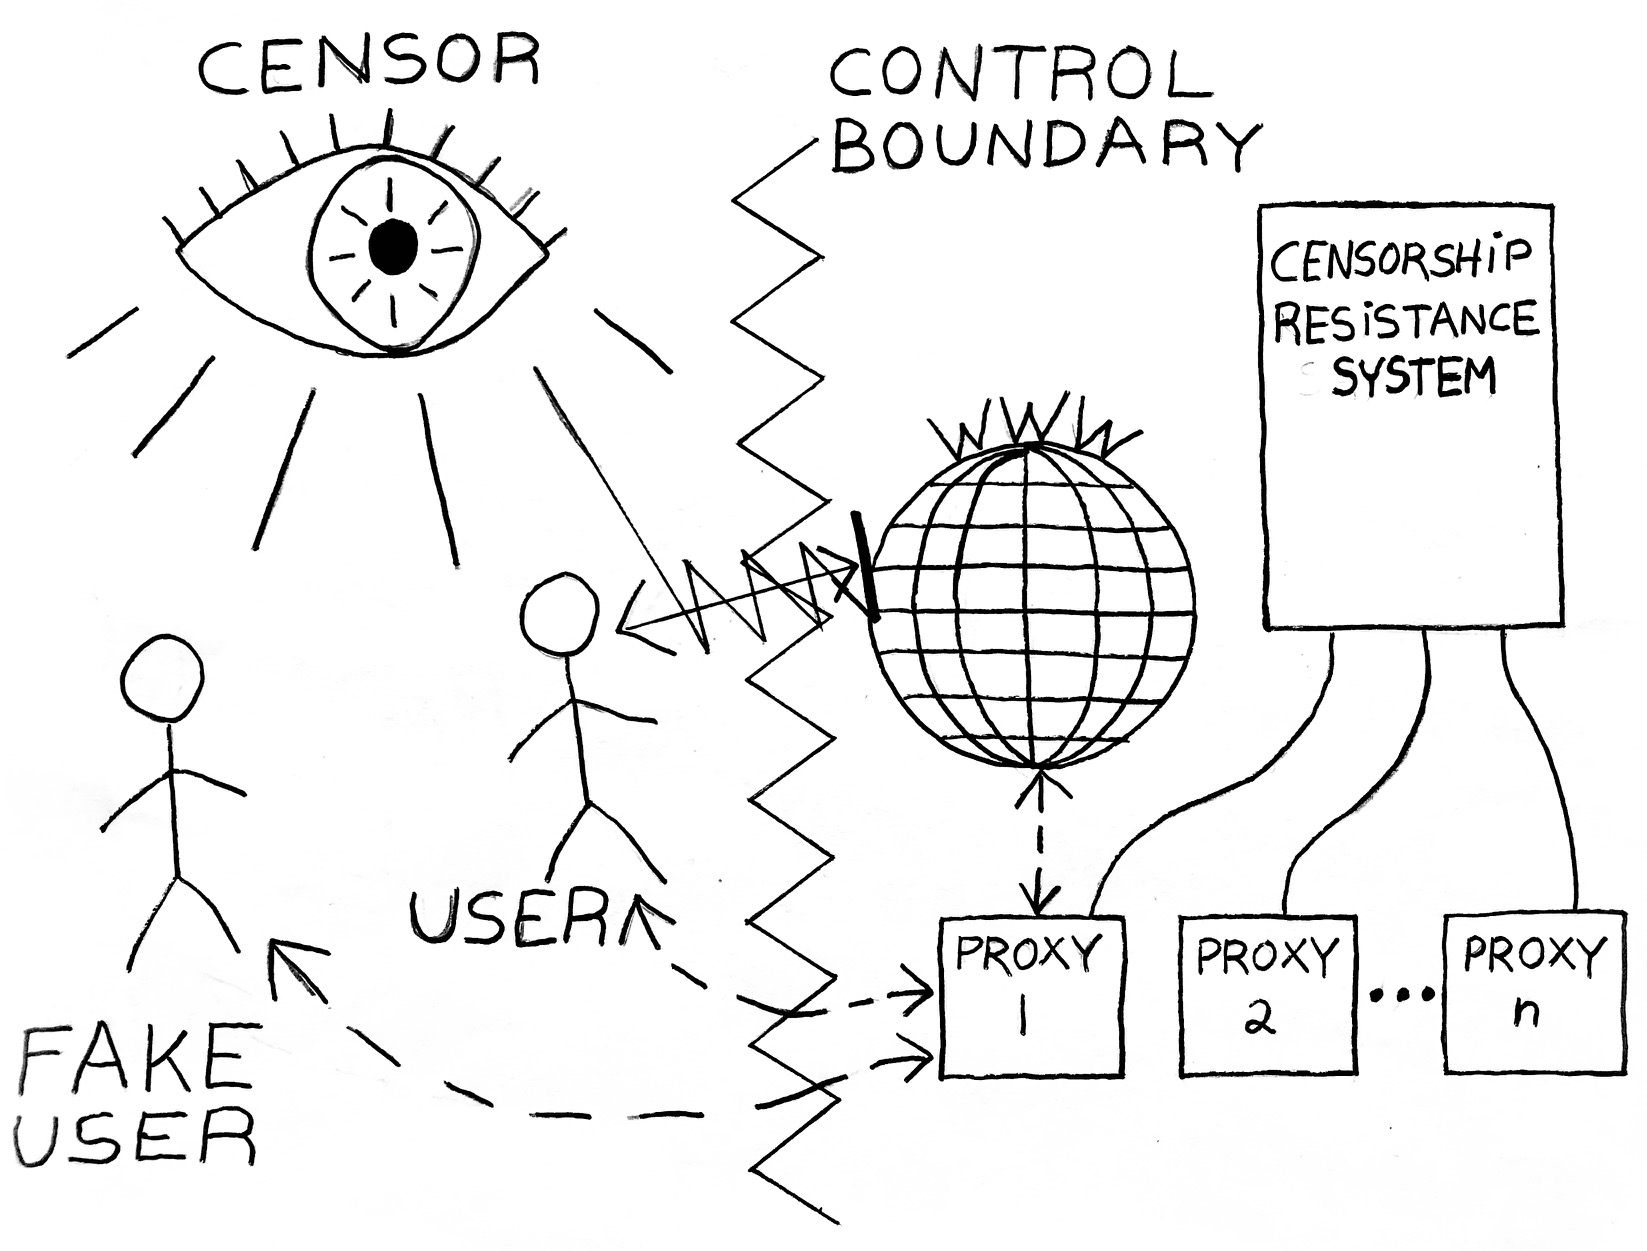 CENSOR
CONTROL
BOUNDARY
CENSORSHiP
RESiSTANCE
SYSTEM
USER
FAKE
USER
PROXY
1
PROXY
2
PROXY
n